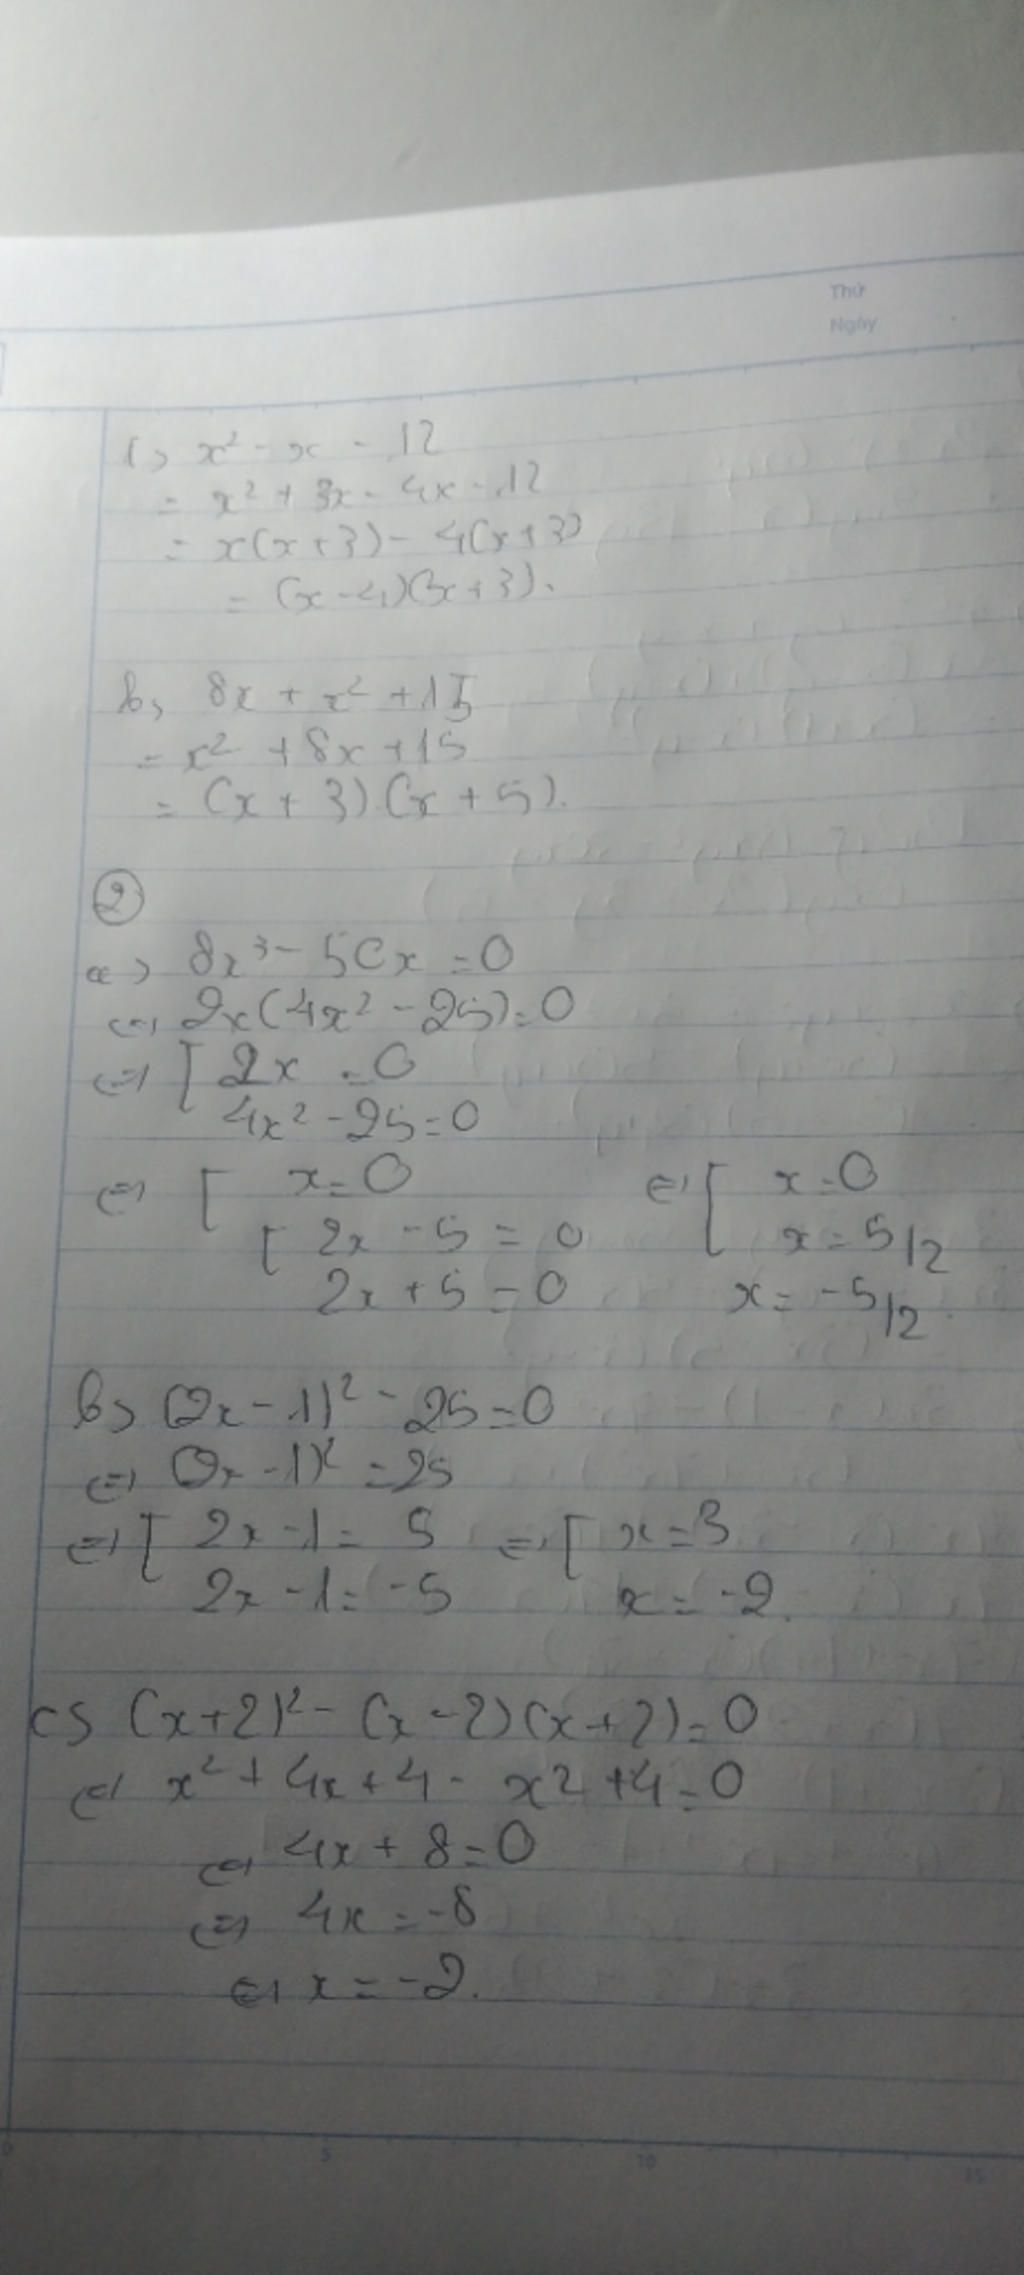 Thứ
Ngày
1) x² - x - 12
= x² + 3x - 4x - 12
= x(x+3) - 4(x+3)
= (x-4)(x+3).
b, 8x + x² + 15
= x² + 8x + 15
= (x + 3).(x + 5).
②
a) 8x³ - 50x = 0
⇔ 2x(4x² - 25) = 0
⇔ [ 2x = 0
4x² - 25 = 0
⇔ [ x = 0 ⇔ [ x = 0
[ 2x - 5 = 0 x = 5/2
2x + 5 = 0 x = -5/2.
b) (2x - 1)² - 25 = 0
⇔ (2x - 1)² = 25
⇔ [ 2x - 1 = 5 ⇔ [ x = 3
2x - 1 = -5 x = -2.
c) (x+2)² - (x-2)(x+2) = 0
⇔ x² + 4x + 4 - x2 + 4 = 0
⇔ 4x + 8 = 0
⇔ 4x = -8
⇔ x = -2.
0 5 10 15